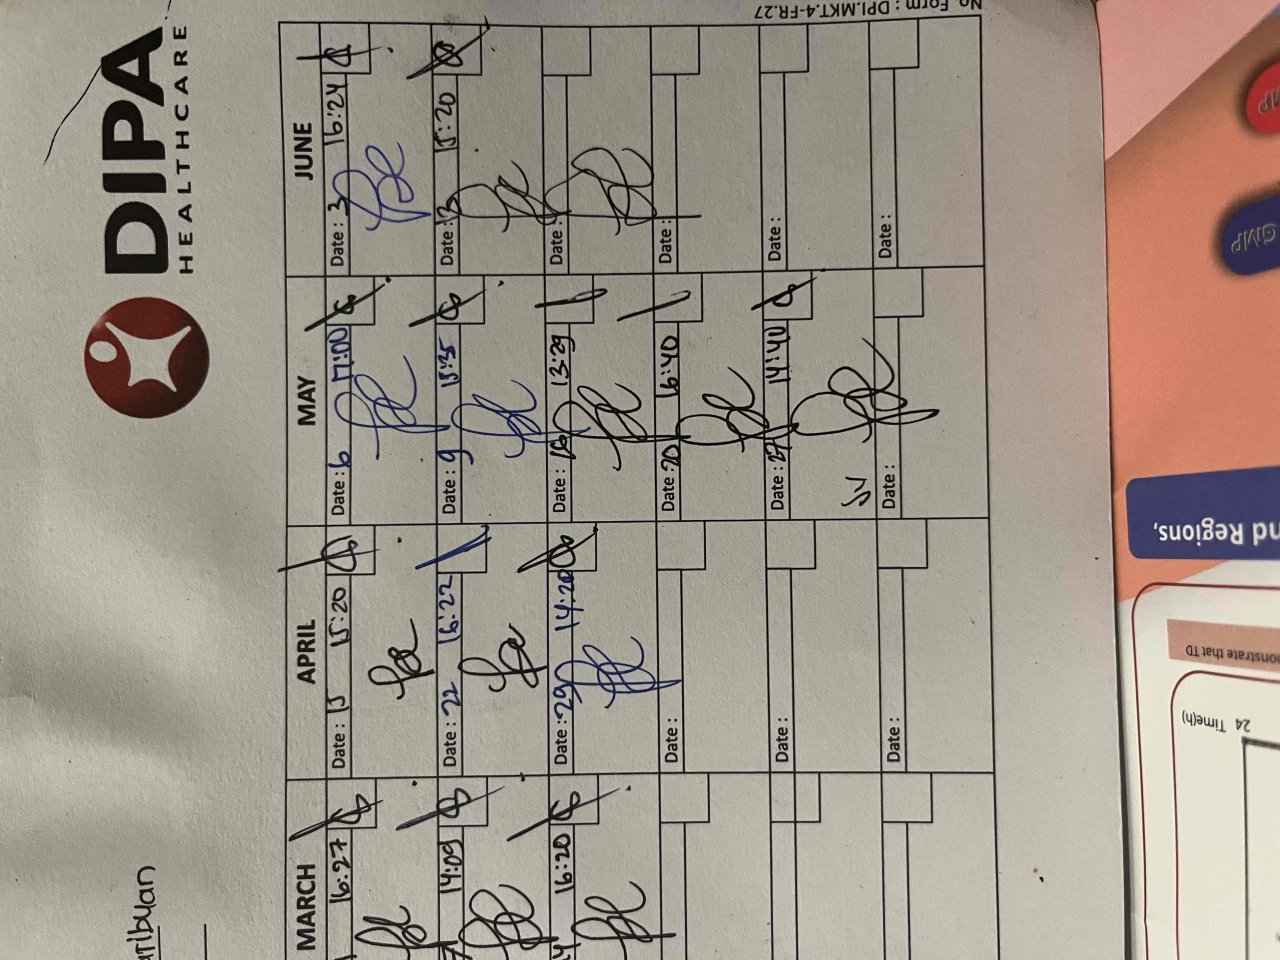 No. Form : DPI.MKT.4-FR.27
DIPA
HEALTHCARE
aribuan
MARCH
16:27
14:09
16:20
APRIL
Date : 15 15:20
Date : 22 16:22
Date : 29 14:20
Date :
Date :
Date :
MAY
Date : 6 17:00
Date : 9 15:35
Date : 16 13:29
Date : 20 16:40
Date : 27 14:40
Date :
JUNE
Date : 3 16:24
Date : 13 15:20
Date :
Date :
Date :
Date :
GMP
nd Regions,
onstrate that TD
24 Time(h)